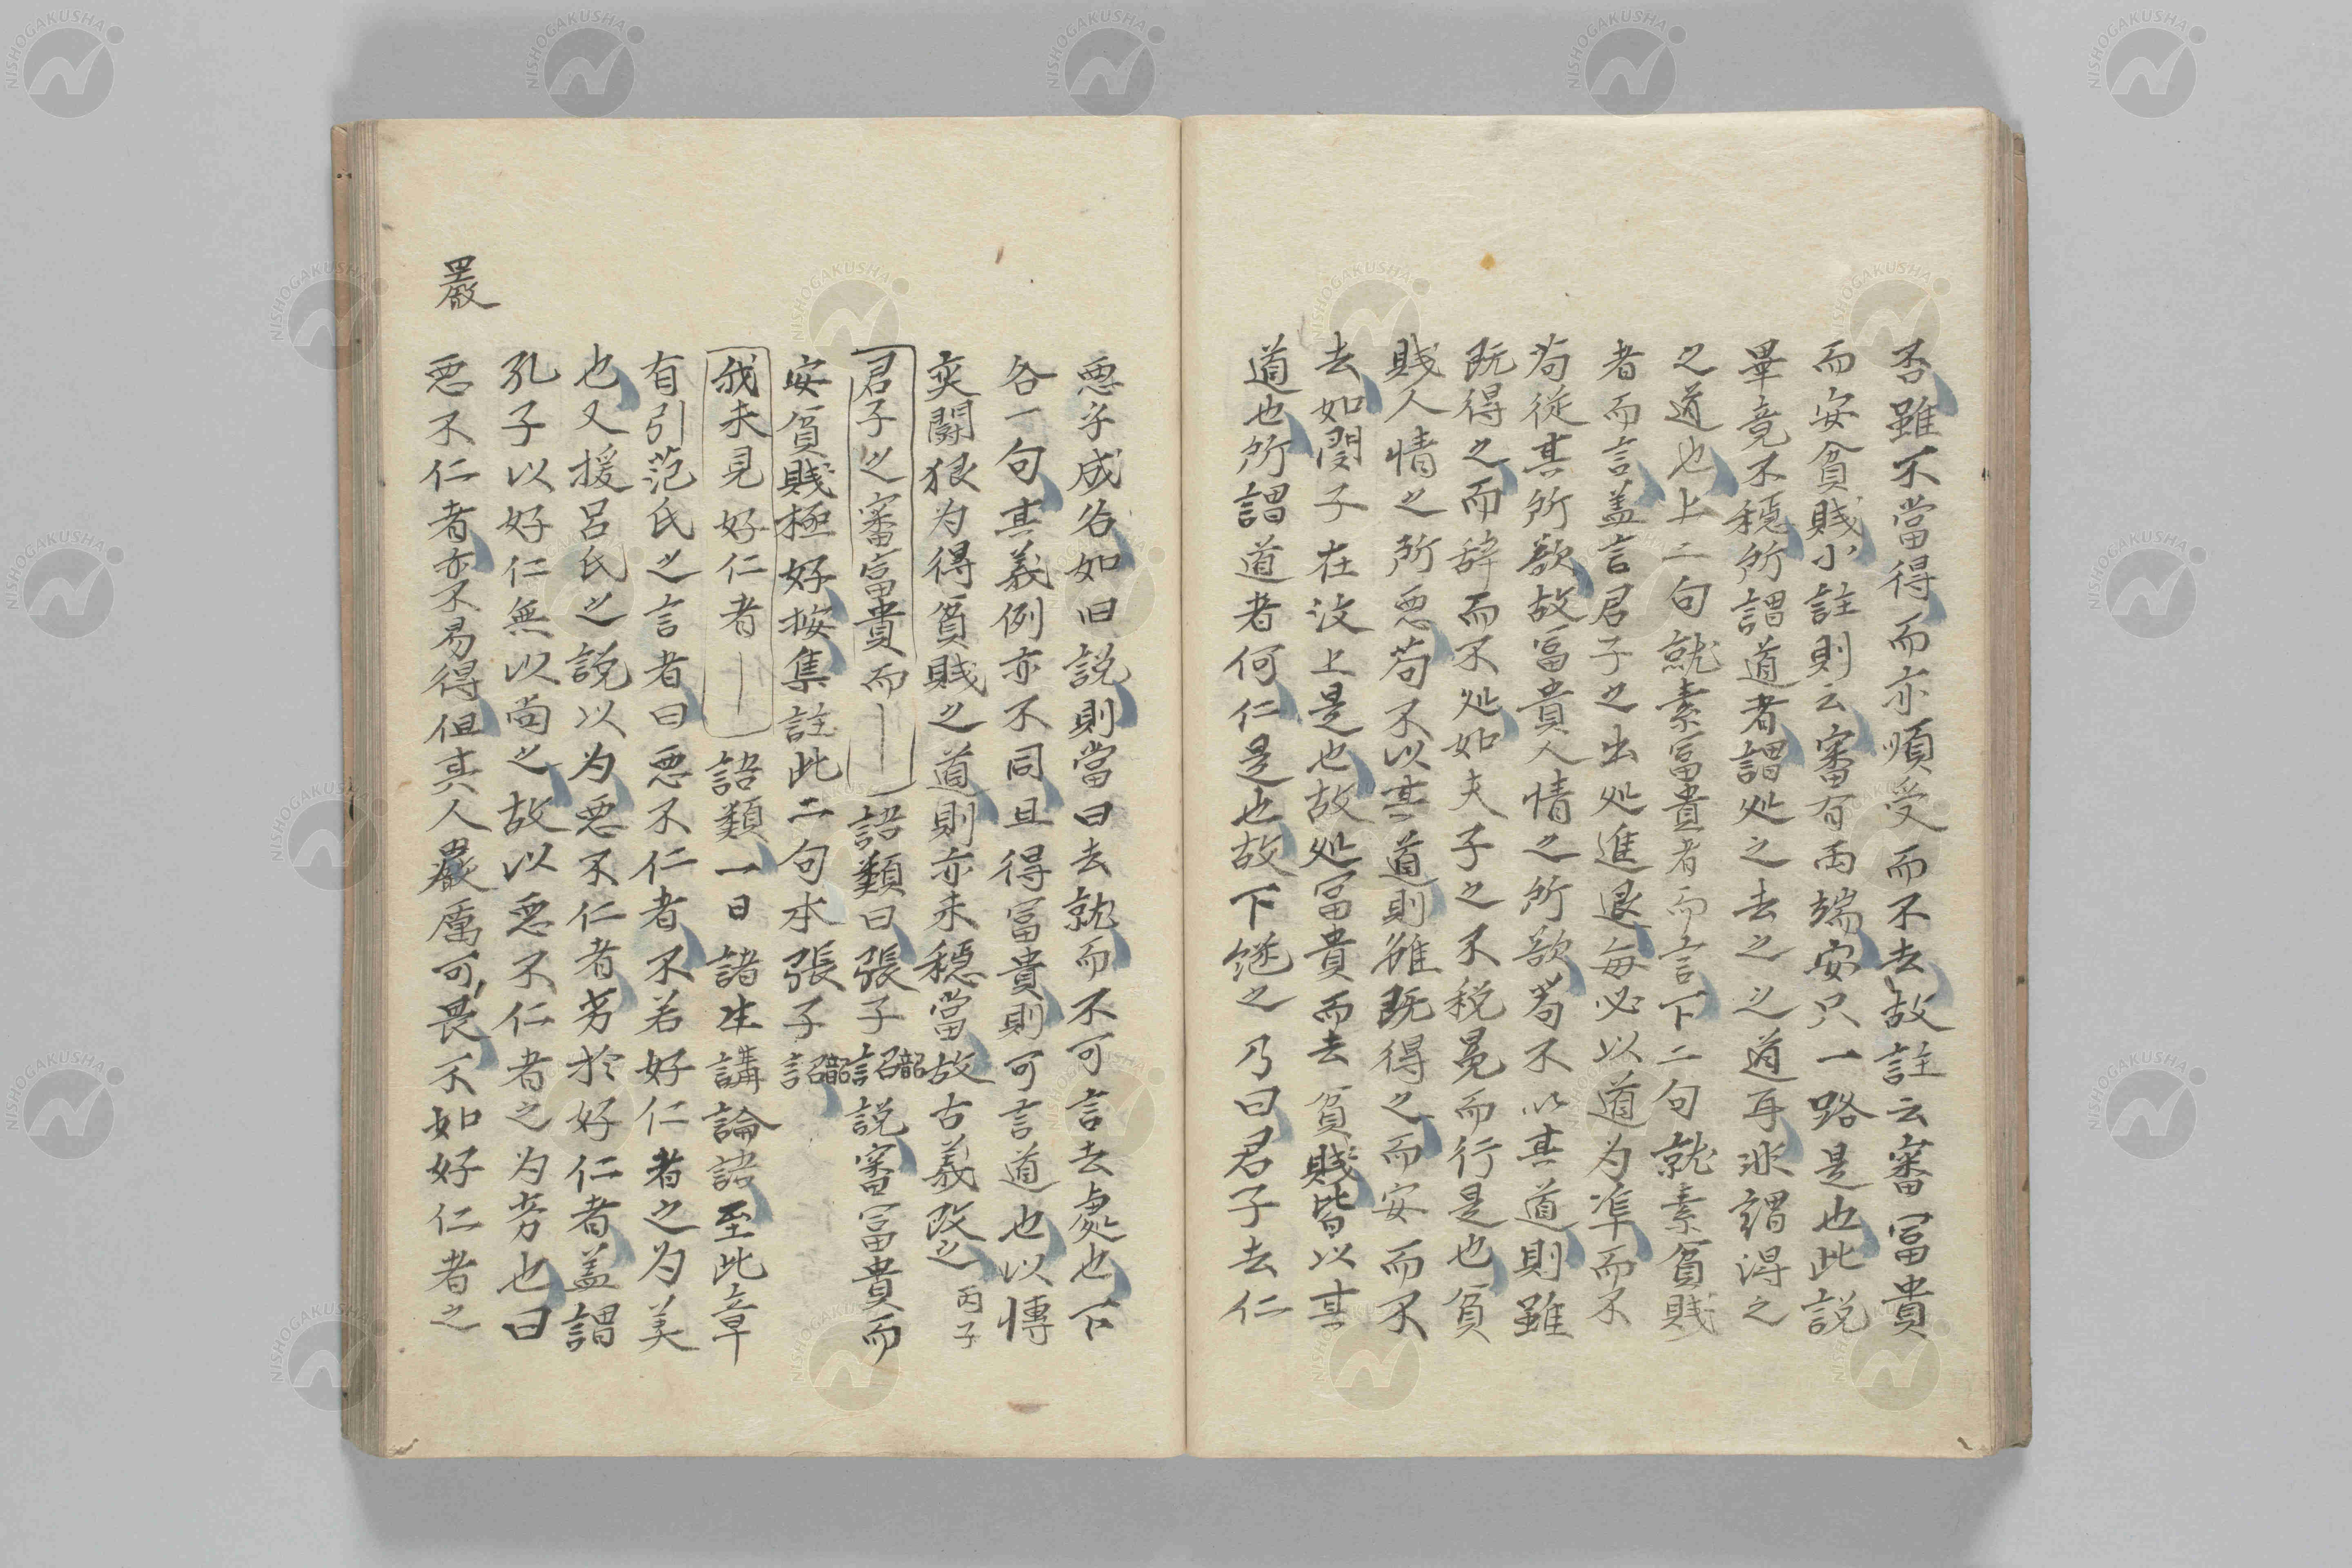 否雖不當得而亦順受而不去故註云審富貴
而安貧賤小註則云審有両端安只一路是也此説
畢竟不穏所謂道者謂処之去之之道耳非謂得之
之道也上二句就素富貴者而言下二句就素貧賤
者而言盖言君子之出処進退毎必以道为準而不
苟従其所欲故富貴人情之所欲苟不以其道則雖
既得之而辞而不処如夫子之不税冕而行是也貧
賤人情之所悪苟不以其道則雖既得之而安而不
去如閔子在汶上是也故処富貴而去貧賤皆以其
道也所謂道者何仁是也故下継之乃曰君子去仁
悪乎成名如旧説則當曰去就而不可言去處也下
各一句其義例亦不同且得富貴則可言道也以慱
奕闘狠为得貧賤之道則亦未穏當故古義改之 丙子
君子之審富貴而｜ 語類曰張子韶説審富貴而
安貧賤極好按集註此二句本張子韶
我未見好仁者｜ 語類一日諸生講論語至此章
有引范氏之言者曰悪不仁者不若好仁者之为美
也又援呂氏之説以为悪不仁者劣於好仁者盖謂
孔子以好仁無以尚之故以悪不仁者之为劣也曰
嚴
悪不仁者亦不易得但其人嚴厲可畏不如好仁者之
NISHOGAKUSHA